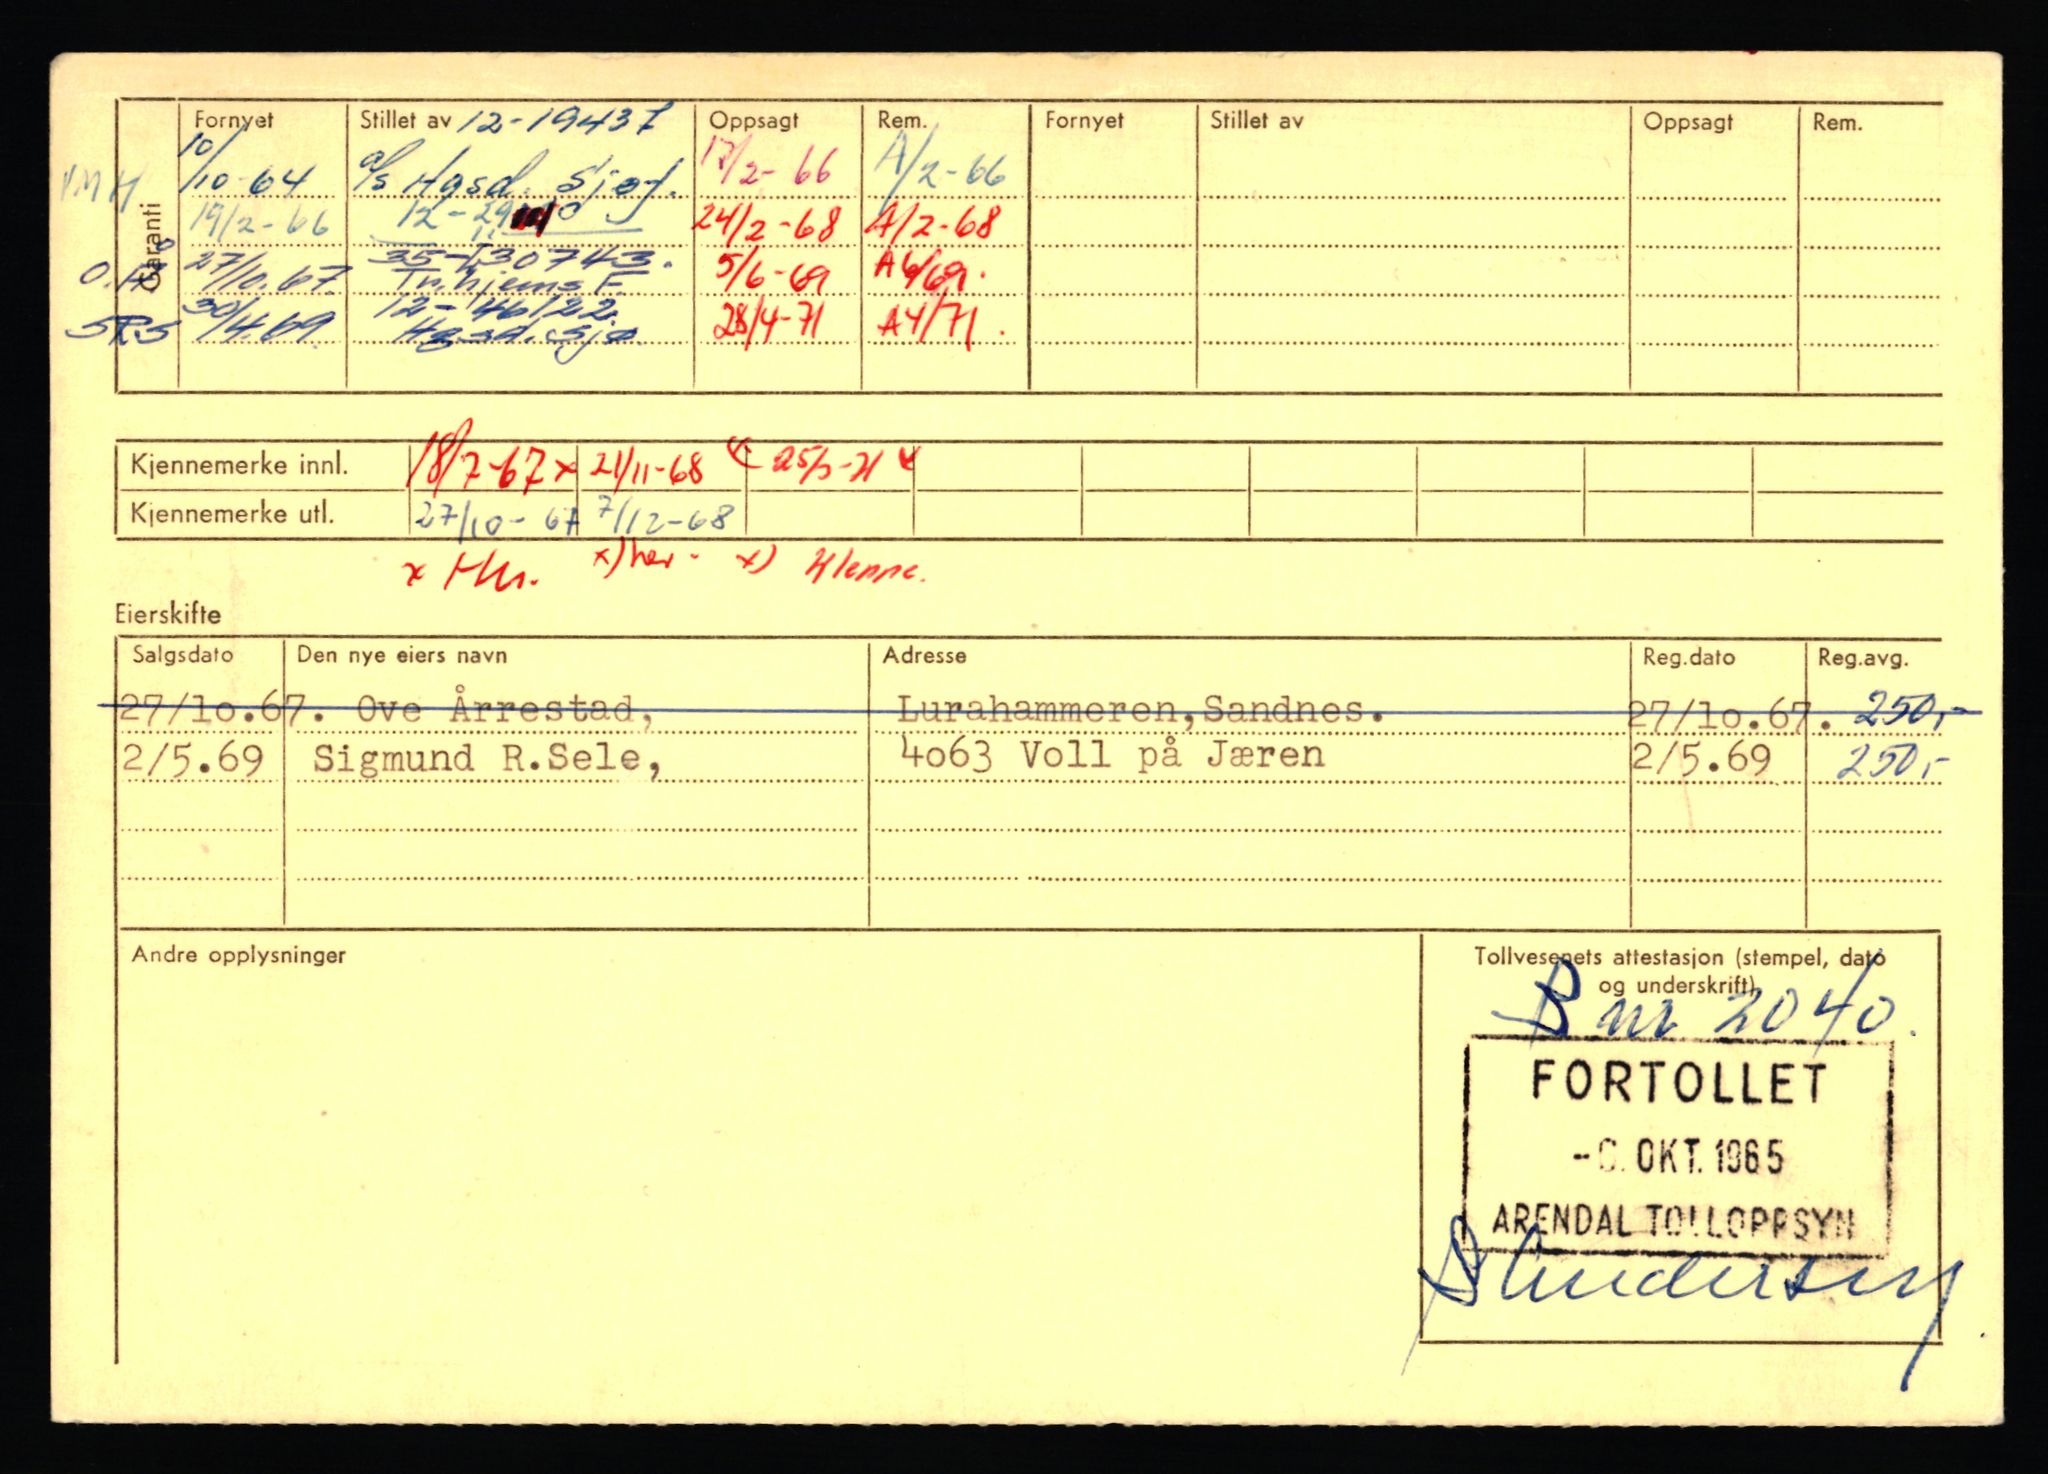 Fornyet Stillet av 12-19437 Oppsagt Rem. Fornyet Stillet av Oppsagt Rem.
Garanti
10/10-64 a/s Hgsd. Sjøf. 17/2-66 A/2-66
19/2-66 12-29 24/2-68 A/2-68
27/10.67 35-130743. 5/6-69 A6/69.
Tr.hjems F.
SRS 30/4.69 12-146122 28/4-71 A4/71.
Hgsd. Sjø
Kjennemerke innl. 18/7-67 x 21/11-68 25/5-71
Kjennemerke utl. 27/10-67 7/12-68
x x) her - x) Hlenne.
Eierskifte
Salgsdato Den nye eiers navn Adresse Reg.dato Reg.avg.
27/1o.67. Ove Årrestad, Lurahammeren,Sandnes. 27/1o.67. 250,-
2/5.69 Sigmund R.Sele, 4o63 Voll på Jæren 2/5.69 250,-
Andre opplysninger
Tollvesenets attestasjon (stempel, dato
og underskrift)
B nr 2040.
FORTOLLET
OKT. 1965
ARENDAL TOLLOPPSYN
Andersen